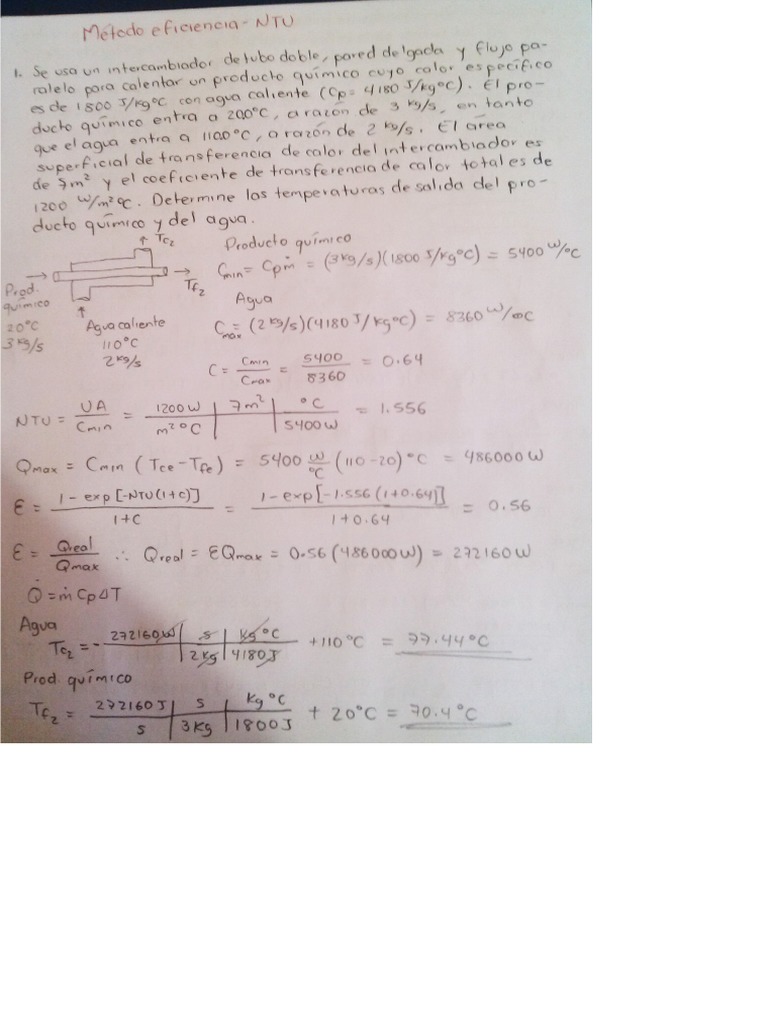 Método eficiencia - NTU
1. Se usa un intercambiador de tubo doble, pared delgada y flujo pa-
ralelo para calentar un producto químico cuyo calor específico
es de 1800 J/kg°C con agua caliente (Cp = 4180 J/kg°C). El pro-
ducto químico entra a 20°C, a razón de 3 kg/s, en tanto
que el agua entra a 110°C, a razón de 2 kg/s. El área
superficial de transferencia de calor del intercambiador es
de 7m² y el coeficiente de transferencia de calor total es de
1200 W/m²°C. Determine las temperaturas de salida del pro-
ducto químico y del agua.
Tc₂
Prod. químico
20°C
3 kg/s
Tf₂
Agua caliente
110°C
2 kg/s
Producto químico
Cmin = Cpṁ = (3 kg/s)(1800 J/kg°C) = 5400 W/°C
Agua
Cmax = (2 kg/s)(4180 J/kg°C) = 8360 W/°C
C = Cmin/Cmax = 5400/8360 = 0.64
NTU = UA/Cmin = 1200W/m²°C | 7m² | °C/5400W = 1.556
Qmax = Cmin (Tce - Tfe) = 5400 W/°C (110 - 20)°C = 486000 W
ε = 1 - exp[-NTU(1+c)]/1+C = 1 - exp[-1.556(1+0.64)]/1+0.64 = 0.56
ε = Qreal/Qmax ∴ Qreal = εQmax = 0.56 (486000W) = 272160 W
Q̇ = ṁ Cp ΔT
Agua
Tc₂ = - 272160 W | s/2 kg | kg°C/4180 J + 110°C = 77.44°C
Prod. químico
Tf₂ = 272160 J/s | s/3 Kg | kg°C/1800 J + 20°C = 70.4°C